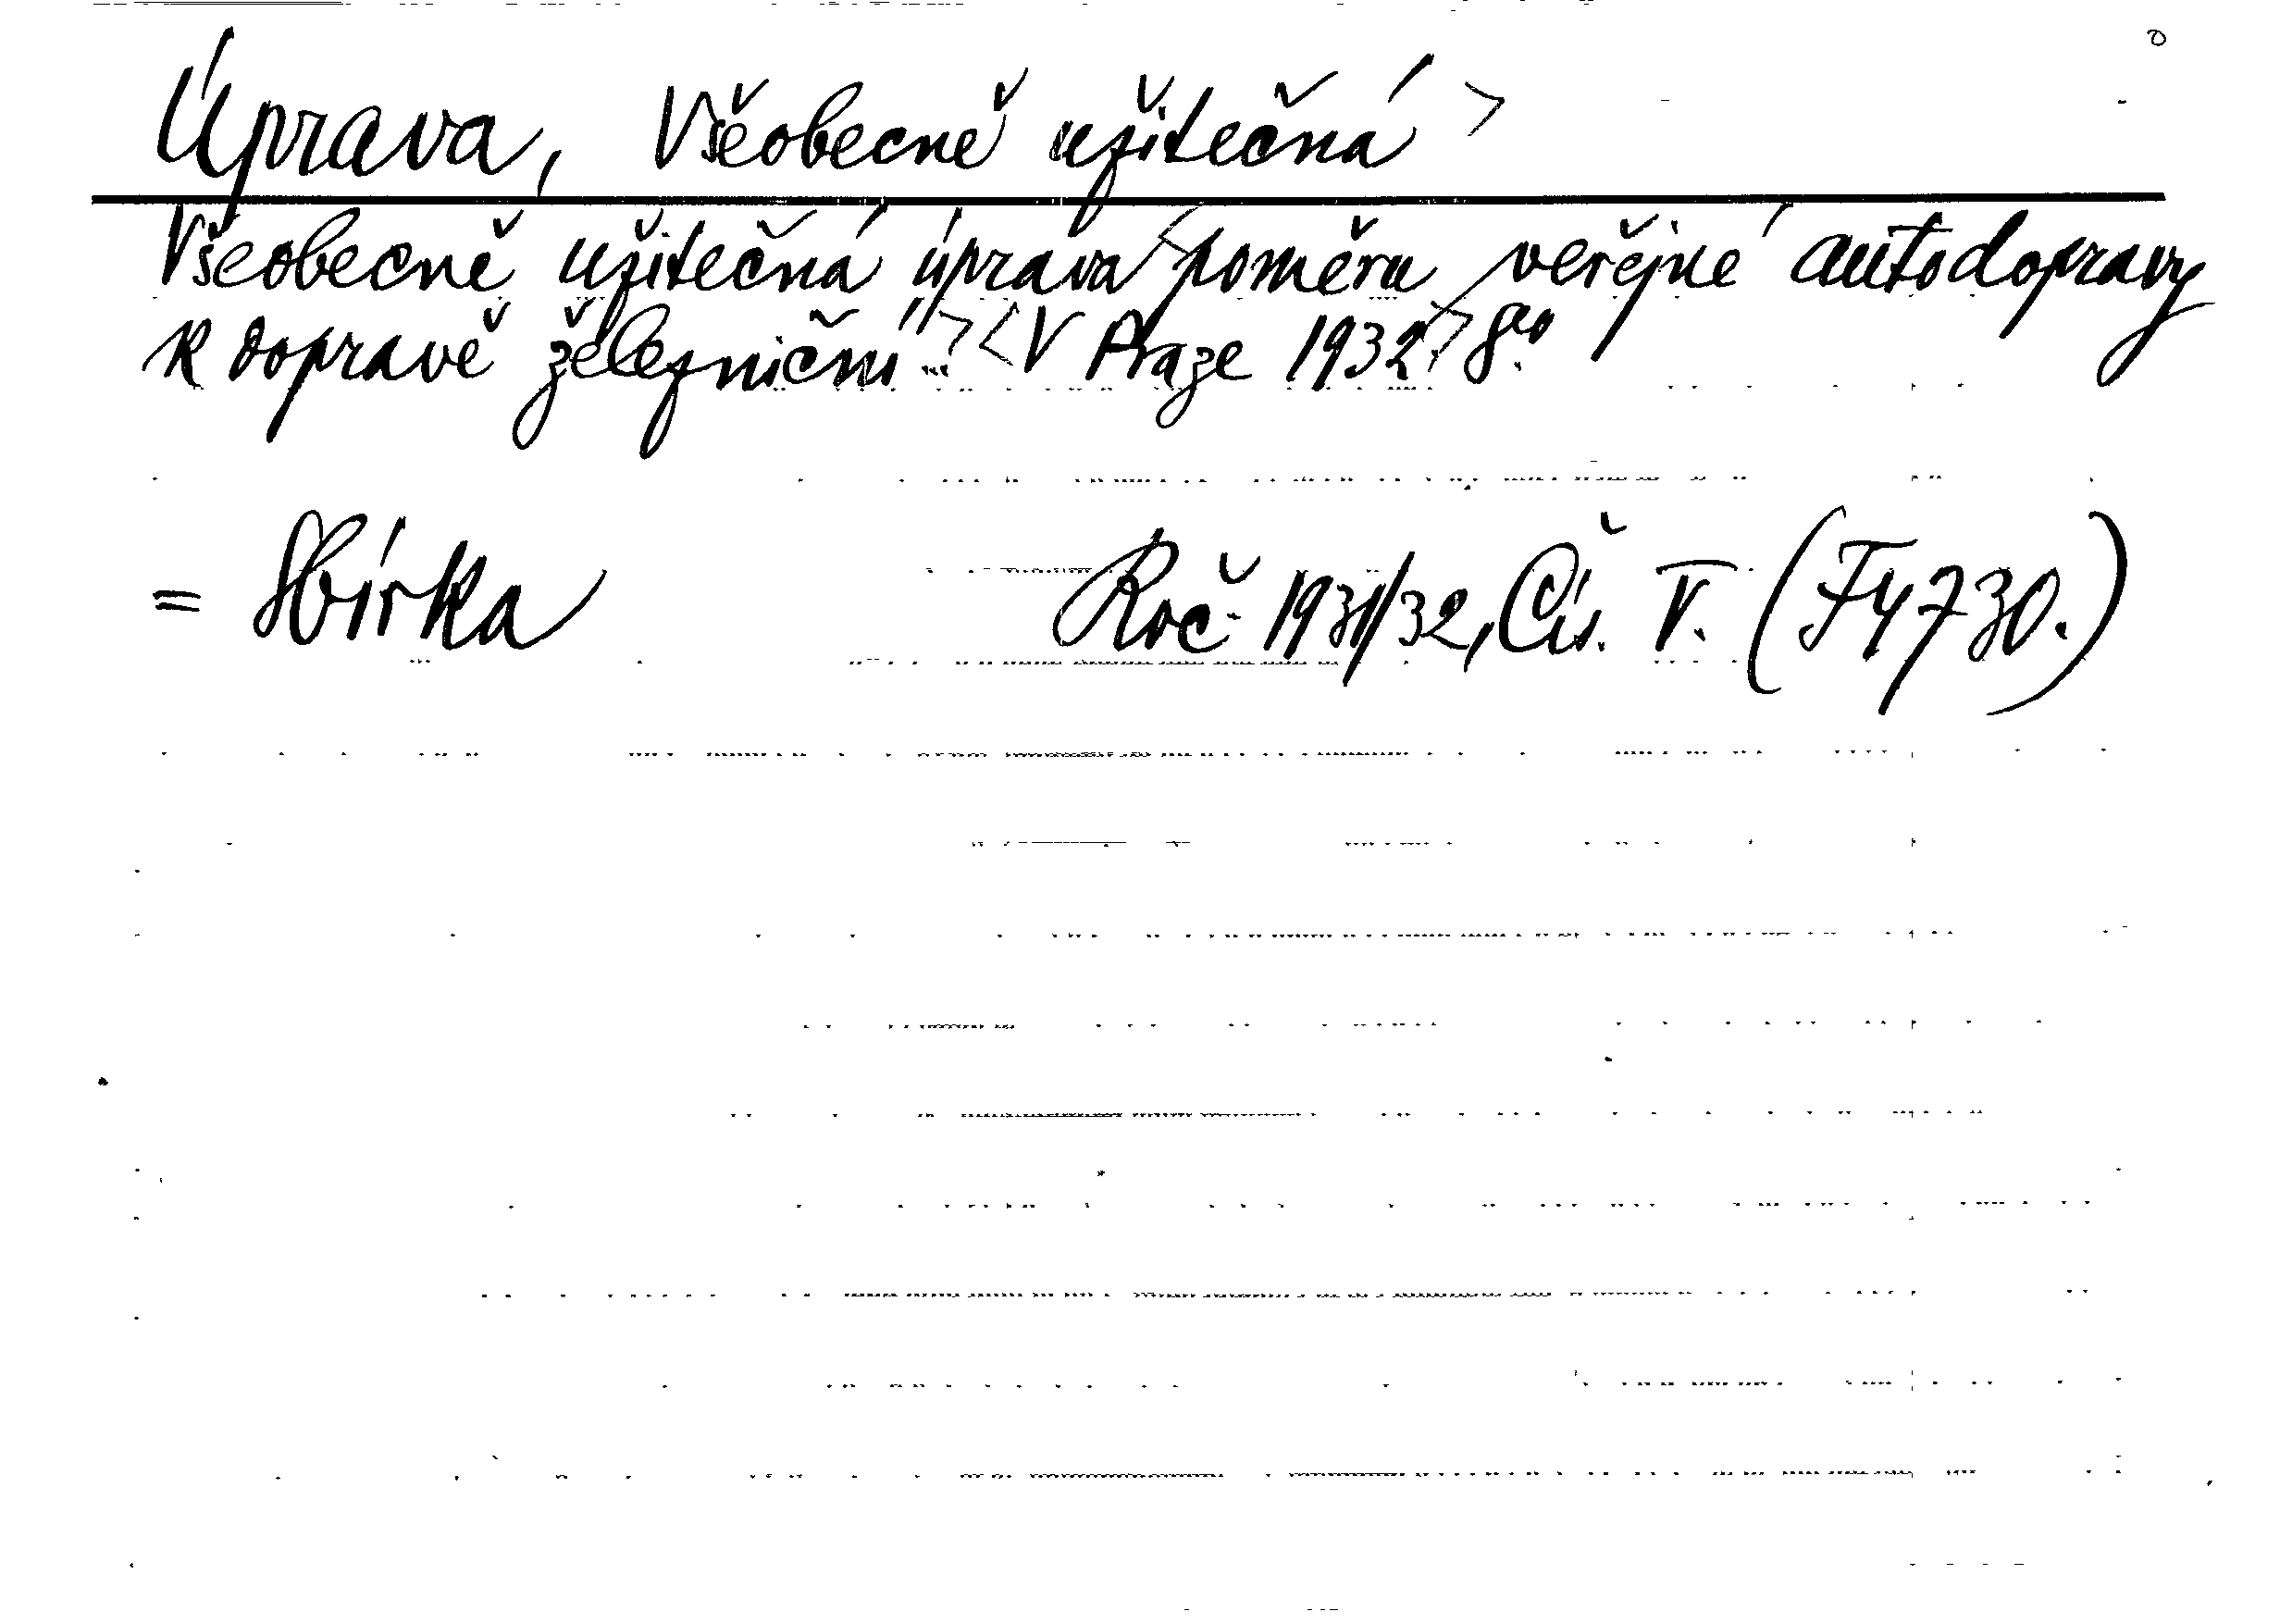 Úprava, Všeobecně užitečná >
Všeobecně užitečná úprava < poměru veřejné autodopravy
k dopravě železniční ...> < V Praze 1932.> 8°.
= Sbírka Roč. 1931/32, Čís. V. (F4730.)